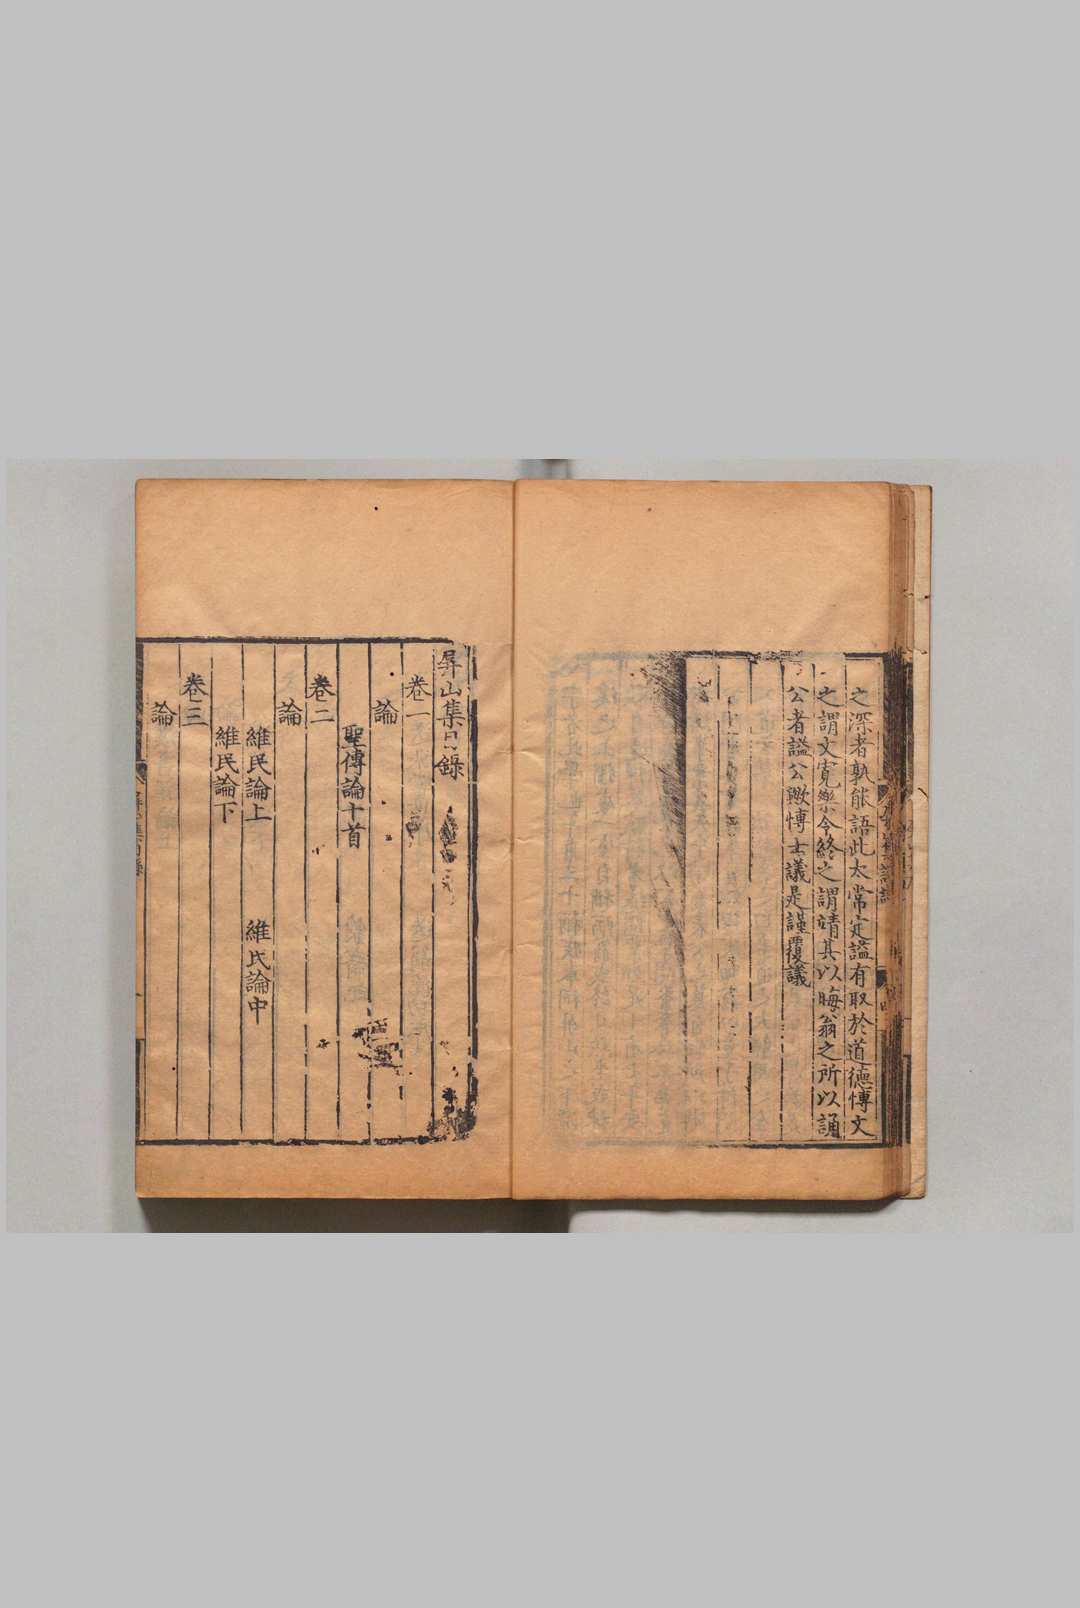 之深者孰能語此太常定謚有取於道德愽文
之謂文寬樂令終之謂靖其以晦翁之所以誦
公者謚公歟愽士議是謹覆議
屏山集目錄
卷一
論
聖傳論十首
卷二
論
維民論上 維民論中
維民論下
卷三
論